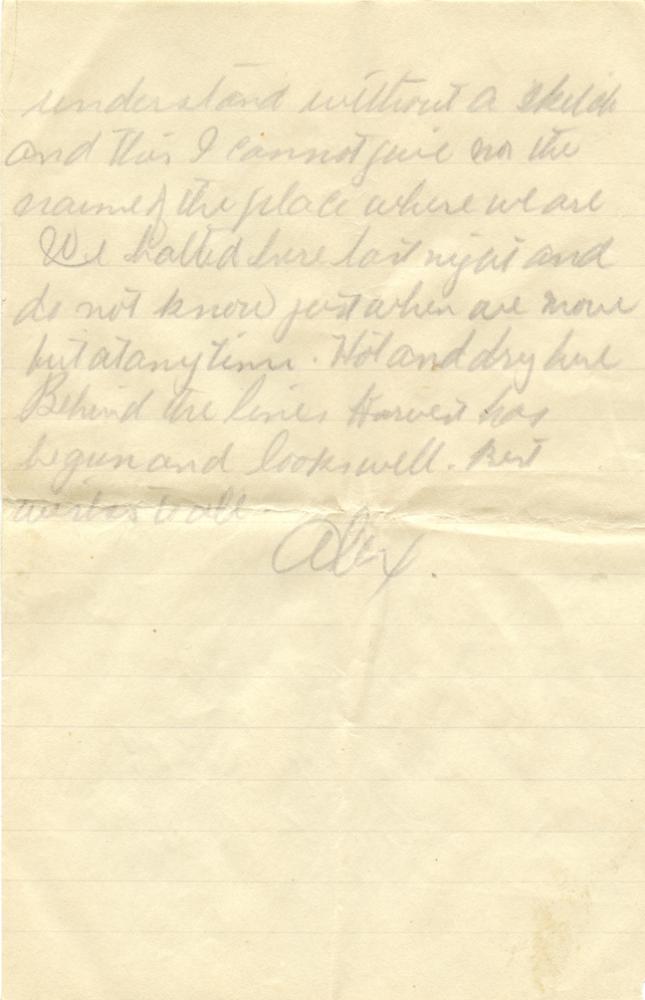 understand without a sketch
and this I cannot give nor the
name of the place where we are
We halted here last night and
do not know just when we move
but at any time. Hot and dry here
Behind the lines Harvest has
begun and looks well. Best
wishes to all
Alex.